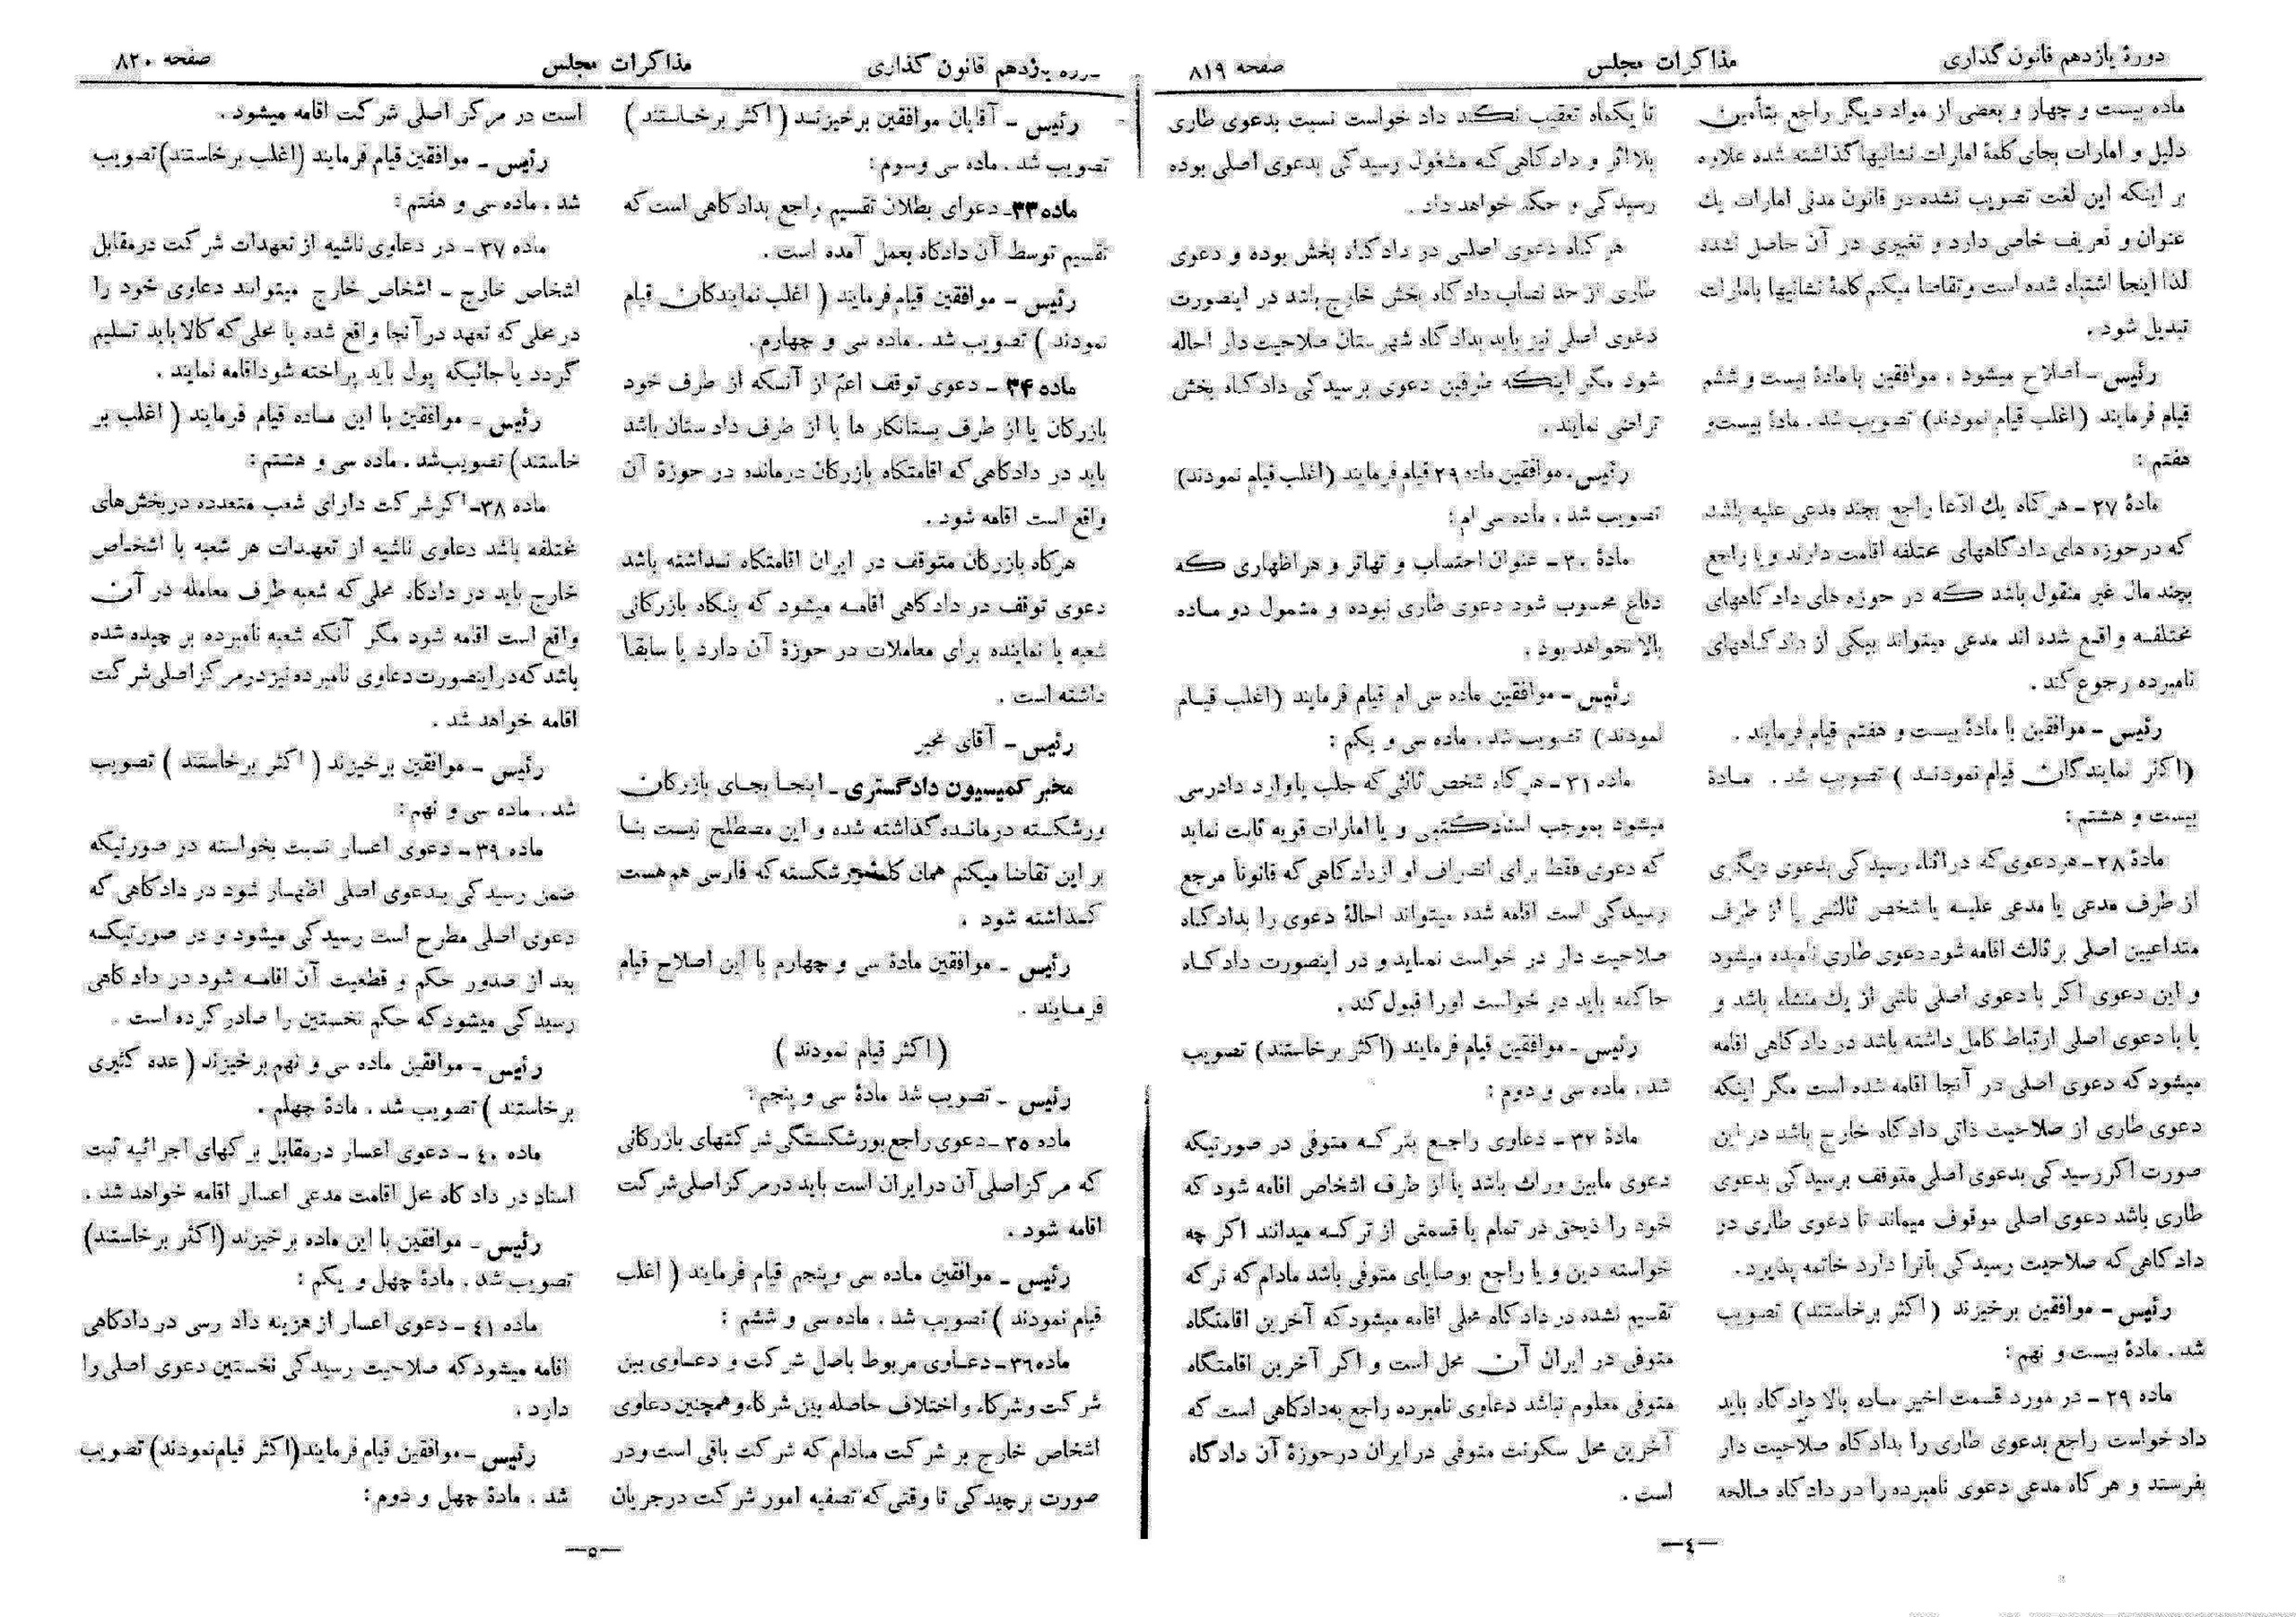 دورهٔ یازدهم قانون گذاری
مذاکرات مجلس
صفحه ۸۱۹
ماده بیست و چهار و بعضی از مواد دیگر راجع بتأمین
دلیل و امارات بجای کلمهٔ امارات نشانیها گذاشته شده علاوه
بر اینکه این لغت تصویب نشده در قانون مدنی امارات یك
عنوان و تعریف خاصی دارد و تغییری در آن حاصل نشده
لذا اینجا اشتباه شده است و تقاضا میکنم کلمهٔ نشانیها بامارات
تبدیل شود .
رئیس – اصلاح میشود . موافقین با مادهٔ بیست و ششم
قیام فرمایند (اغلب قیام نمودند) تصویب شد . مادهٔ بیست و
هفتم :
مادهٔ ۲۷ – هرگاه یك ادّعا راجع بچند مدعی علیه باشد
که در حوزه های دادگاههای مختلفه اقامت دارند و یا راجع
بچند مال غیر منقول باشد که در حوزه های دادگاههای
مختلفه واقع شده اند مدعی میتواند بیکی از دادگاههای
نامبرده رجوع کند .
رئیس – موافقین با مادهٔ بیست و هفتم قیام فرمایند .
(اکثر نمایندگان قیام نمودند ) تصویب شد . مادهٔ
بیست و هشتم :
مادهٔ ۲۸ – هر دعوی که در اثناء رسیدگی بدعوی دیگری
از طرف مدعی یا مدعی علیه یا شخص ثالثی یا از طرف
متداعیین اصلی بر ثالث اقامه شود دعوی طاری نامیده میشود
و این دعوی اگر با دعوی اصلی ناشی از یك منشاء باشد و
یا با دعوی اصلی ارتباط کامل داشته باشد در دادگاهی اقامه
میشود که دعوی اصلی در آنجا اقامه شده است مگر اینکه
دعوی طاری از صلاحیت ذاتی دادگاه خارج باشد در این
صورت اگر رسیدگی بدعوی اصلی متوقف برسیدگی بدعوی
طاری باشد دعوی اصلی موقوف میماند تا دعوی طاری در
دادگاهی که صلاحیت رسیدگی بآنرا دارد خاتمه پذیرد .
رئیس – موافقین برخیزند (اکثر برخاستند) تصویب
شد . مادهٔ بیست و نهم :
ماده ۲۹ – در مورد قسمت اخیر ماده بالا دادگاه باید
داد خواست راجع بدعوی طاری را بدادگاه صلاحیت دار
بفرستد و هرگاه مدعی دعوی نامبرده را در دادگاه صالحه
تا یکماه تعقیب نکند داد خواست نسبت بدعوی طاری
بلا اثر و دادگاهی که مشغول رسیدگی بدعوی اصلی بوده
رسیدگی و حکم خواهد داد .
هرگاه دعوی اصلی در دادگاه بخش بوده و دعوی
طاری از حد نصاب دادگاه بخش خارج باشد در اینصورت
دعوی اصلی نیز باید بدادگاه شهرستان صلاحیت دار احاله
شود مگر اینکه طرفین دعوی برسیدگی دادگاه بخش
تراضی نمایند .
رئیس . موافقین ماده ۲۹ قیام فرمایند (اغلب قیام نمودند)
تصویب شد . ماده سی ام :
مادهٔ ۳۰ – عنوان احتساب و تهاتر و هر اظهاری که
دفاع محسوب شود دعوی طاری نبوده و مشمول دو ماده
بالا نخواهد بود .
رئیس – موافقین ماده سی ام قیام فرمایند (اغلب قیام
نمودند ) تصویب شد . ماده سی و یکم :
ماده ۳۱ – هرگاه شخص ثالثی که جلب یا وارد دادرسی
میشود بموجب اسناد کتبی و یا امارات قویه ثابت نماید
که دعوی فقط برای انصراف او از دادگاهی که قانوناً مرجع
رسیدگی است اقامه شده میتواند احالهٔ دعوی را بدادگاه
صلاحیت دار در خواست نماید و در اینصورت دادگاه
حاکمه باید در خواست او را قبول کند .
رئیس – موافقین قیام فرمایند (اکثر برخاستند) تصویب
شد . ماده سی و دوم :
مادهٔ ۳۲ – دعاوی راجع بترکه متوفی در صورتیکه
دعوی مابین وراث باشد یا از طرف اشخاص اقامه شود که
خود را ذیحق در تمام یا قسمتی از ترکه میدانند اگر چه
خواسته دین و یا راجع بوصایای متوفی باشد مادام که ترکه
تقسیم نشده در دادگاه محلی اقامه میشود که آخرین اقامتگاه
متوفی در ایران آن محل است و اگر آخرین اقامتگاه
متوفی معلوم نباشد دعاوی نامبرده راجع به‌دادگاهی است که
آخرین محل سکونت متوفی در ایران در حوزهٔ آن دادگاه
است .
—٤—
یازدهم قانون گذاری
مذاکرات مجلس
صفحه ۸۲۰
رئیس – آقایان موافقین برخیزند (اکثر برخاستند )
تصویب شد . ماده سی و سوم :
ماده ۳۳- دعوای بطلان تقسیم راجع بدادگاهی است که
تقسیم توسط آن دادگاه بعمل آمده است .
رئیس – موافقین قیام فرمایند ( اغلب نمایندگان قیام
نمودند ) تصویب شد . ماده سی و چهارم .
ماده ۳۴ – دعوی توقف اعمّ از آنکه از طرف خود
بازرگان یا از طرف بستانکار ها یا از طرف دادستان باشد
باید در دادگاهی که اقامتگاه بازرگان درمانده در حوزهٔ آن
واقع است اقامه شود .
هرگاه بازرگان متوقف در ایران اقامتگاه نداشته باشد
دعوی توقف در دادگاهی اقامه میشود که بنگاه بازرگانی
شعبه یا نماینده برای معاملات در حوزهٔ آن دارد یا سابقا
داشته است .
رئیس – آقای مخبر
مخبر کمیسیون دادگستری – اینجا بجای بازرگان
ورشکسته درمانده گذاشته شده و این مصطلح نیست بنا
بر این تقاضا میکنم همان کلمهٔ ورشکسته که فارسی هم هست
گذاشته شود .
رئیس – موافقین مادهٔ سی و چهارم با این اصلاح قیام
فرمایند .
( اکثر قیام نمودند )
رئیس – تصویب شد مادهٔ سی و پنجم :
ماده ۳۵ – دعوی راجع بورشکستگی شرکتهای بازرگانی
که مرکز اصلی آن در ایران است باید در مرکز اصلی شرکت
اقامه شود .
رئیس – موافقین ماده سی و پنجم قیام فرمایند ( اغلب
قیام نمودند ) تصویب شد . ماده سی و ششم :
ماده ۳۶ – دعاوی مربوط باصل شرکت و دعاوی بین
شرکت و شرکاء و اختلاف حاصله بین شرکاء و همچنین دعاوی
اشخاص خارج بر شرکت مادام که شرکت باقی است و در
صورت برچیدگی تا وقتی که تصفیه امور شرکت در جریان
است در مرکز اصلی شرکت اقامه میشود .
رئیس – موافقین قیام فرمایند (اغلب برخاستند) تصویب
شد . ماده سی و هفتم :
ماده ۳۷ – در دعاوی ناشیه از تعهدات شرکت در مقابل
اشخاص خارج – اشخاص خارج میتوانند دعاوی خود را
در محلی که تعهد در آنجا واقع شده یا محلی که کالا باید تسلیم
گردد یا جائیکه پول باید پراخته شود اقامه نمایند .
رئیس – موافقین با این ماده قیام فرمایند ( اغلب بر
خاستند) تصویب شد . ماده سی و هشتم :
ماده ۳۸- اگر شرکت دارای شعب متعدده در بخش های
مختلفه باشد دعاوی ناشیه از تعهدات هر شعبه با اشخاص
خارج باید در دادگاه محلی که شعبه طرف معامله در آن
واقع است اقامه شود مگر آنکه شعبه نامبرده بر چیده شده
باشد که در اینصورت دعاوی نامبرده نیز در مرکز اصلی شرکت
اقامه خواهد شد .
رئیس – موافقین برخیزند ( اکثر برخاستند ) تصویب
شد . ماده سی و نهم :
ماده ۳۹ – دعوی اعسار نسبت بخواسته در صورتیکه
ضمن رسیدگی بدعوی اصلی اظهار شود در دادگاهی که
دعوی اصلی مطرح است رسیدگی میشود و در صورتیکه
بعد از صدور حکم و قطعیت آن اقامه شود در دادگاهی
رسیدگی میشود که حکم نخستین را صادر کرده است .
رئیس – موافقین ماده سی و نهم برخیزند ( عده کثیری
برخاستند ) تصویب شد . مادهٔ چهلم .
ماده ٤٠ – دعوی اعسار در مقابل برگهای اجرائیه ثبت
اسناد در دادگاه محل اقامت مدعی اعسار اقامه خواهد شد .
رئیس – موافقین با این ماده برخیزند (اکثر برخاستند)
تصویب شد . مادهٔ چهل و یکم :
ماده ٤١ – دعوی اعسار از هزینه داد رسی در دادگاهی
اقامه میشود که صلاحیت رسیدگی نخستین دعوی اصلی را
دارد .
رئیس – موافقین قیام فرمایند (اکثر قیام نمودند) تصویب
شد . مادهٔ چهل و دوم :
—٥—